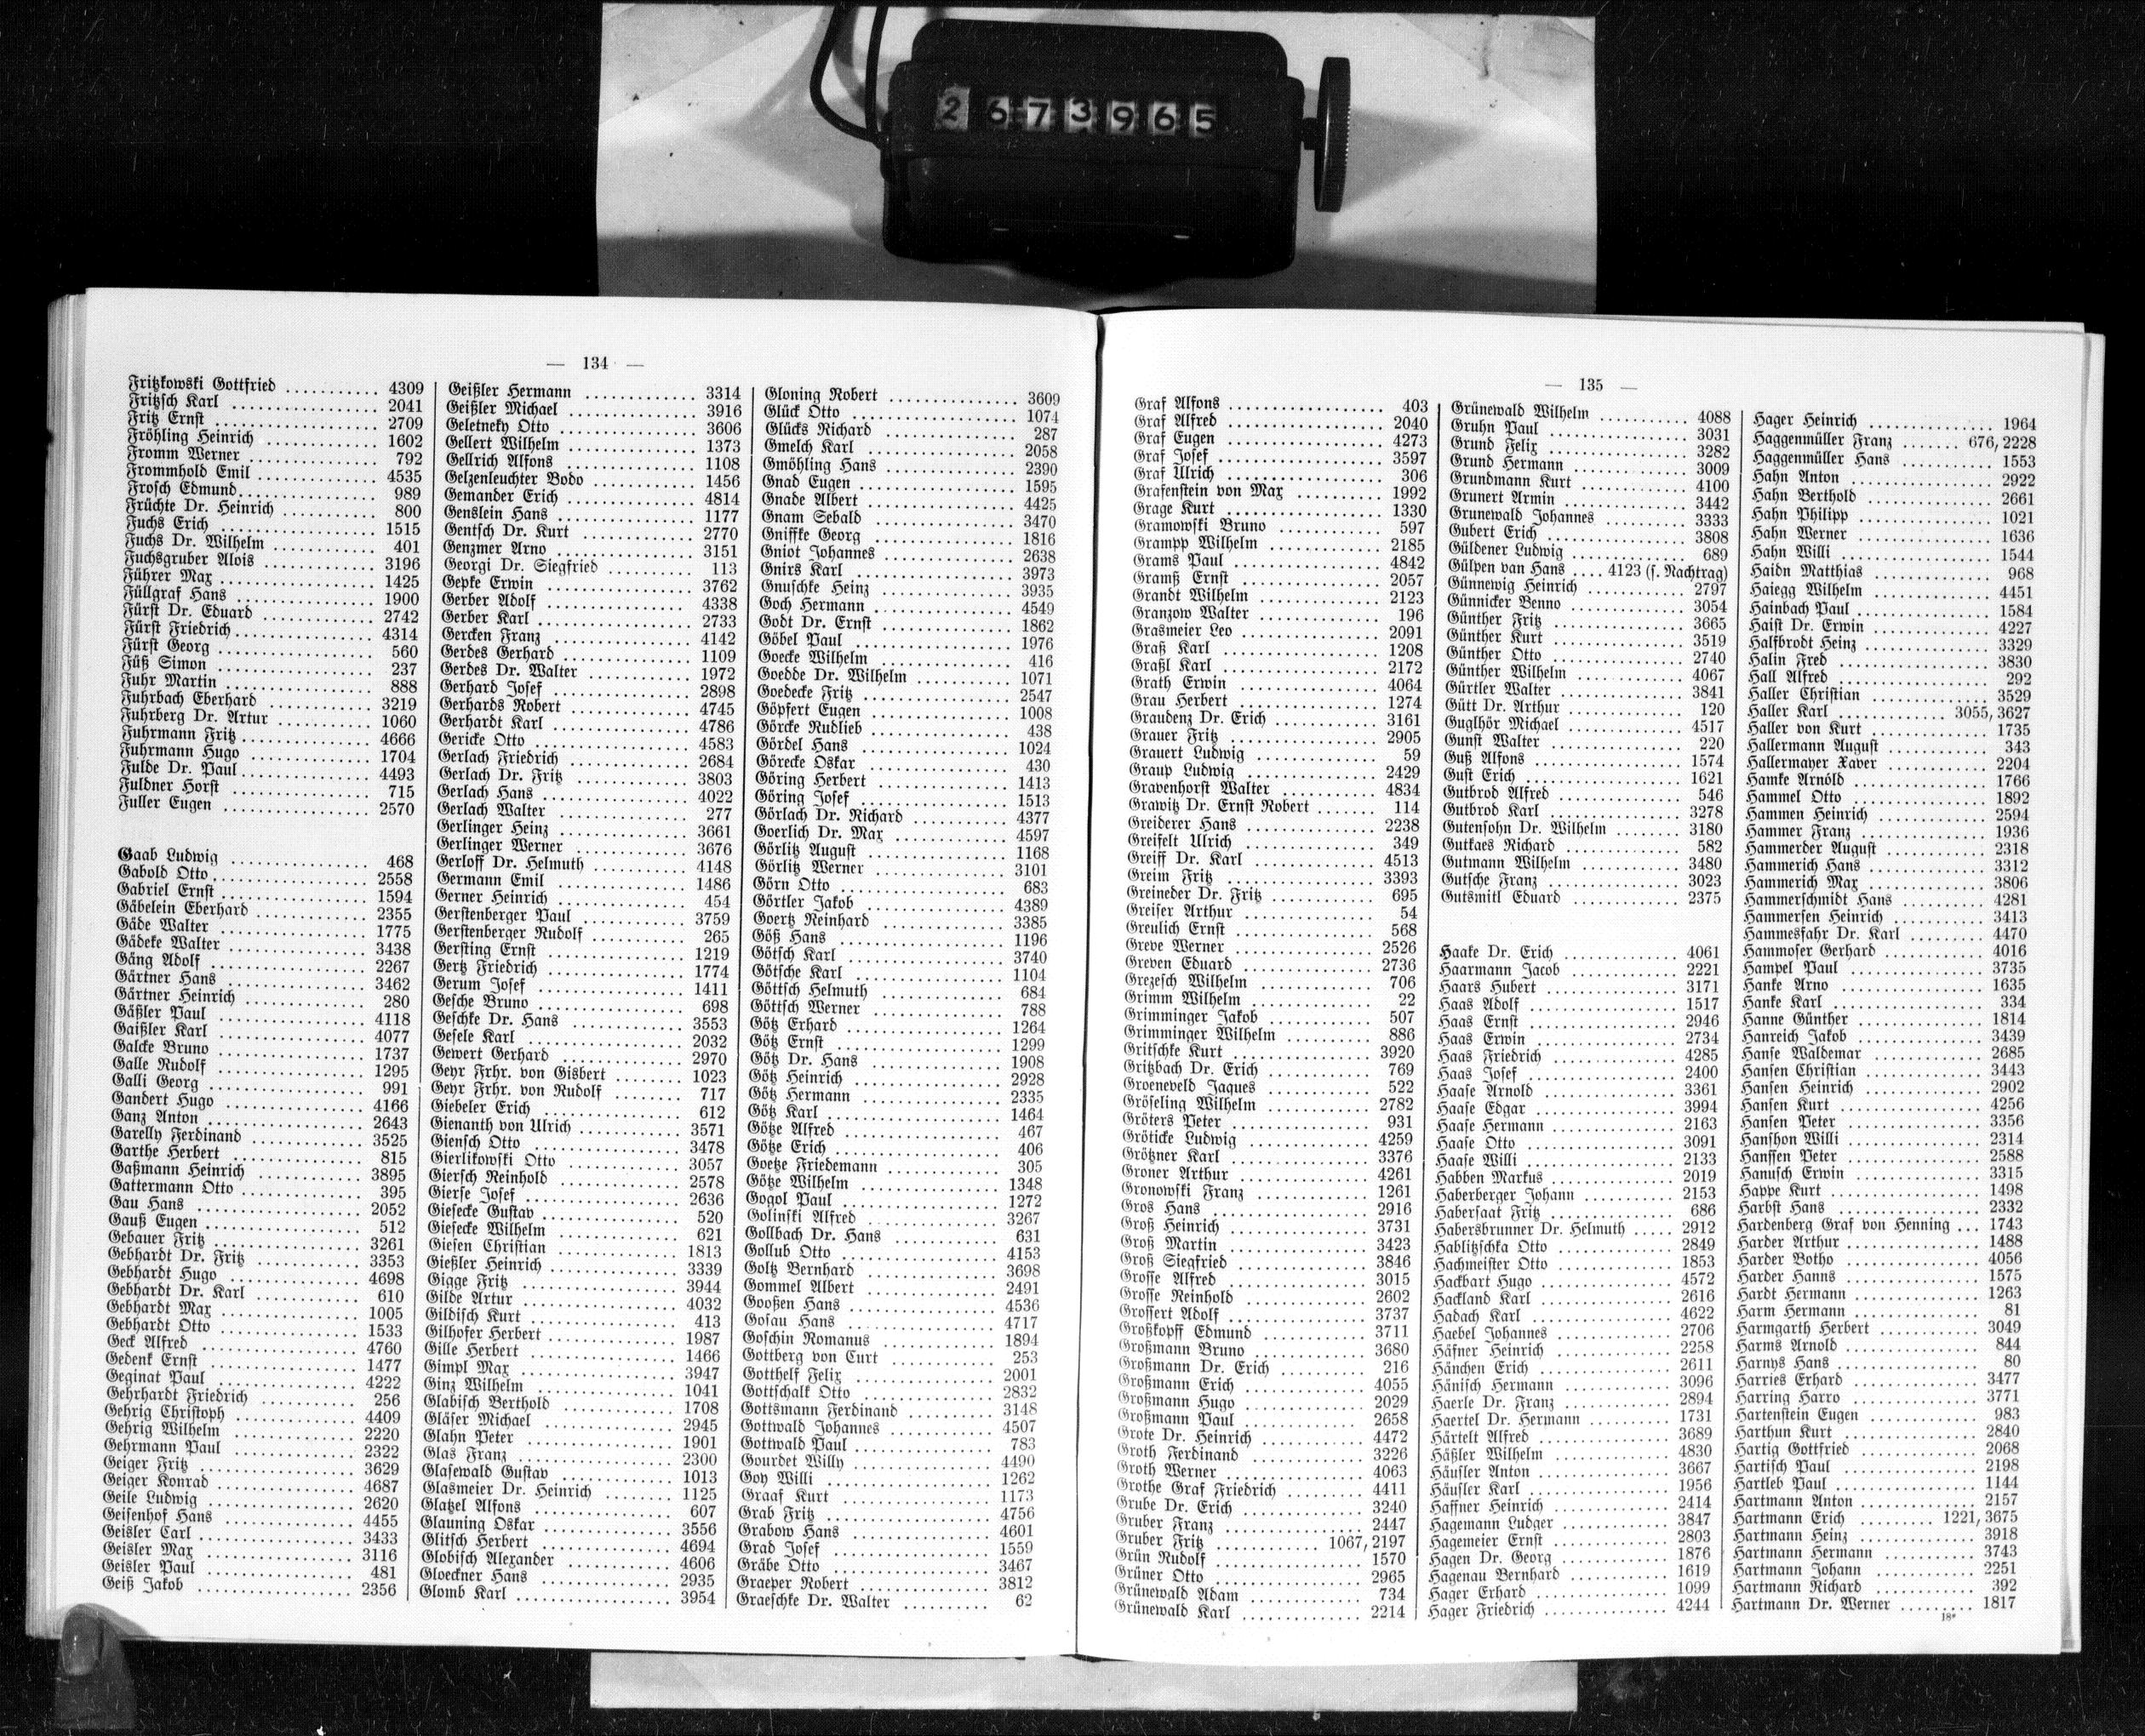 2673965
— 134 —
Fritzkowski Gottfried .......... 4309
Fritzsch Karl .......... 2041
Fritz Ernst .......... 2709
Fröhling Heinrich .......... 1602
Fromm Werner .......... 792
Frommhold Emil .......... 4535
Frosch Edmund .......... 989
Früchte Dr. Heinrich .......... 800
Fuchs Erich .......... 1515
Fuchs Dr. Wilhelm .......... 401
Fuchsgruber Alois .......... 3196
Führer Max .......... 1425
Füllgraf Hans .......... 1900
Fürst Dr. Eduard .......... 2742
Fürst Friedrich .......... 4314
Fürst Georg .......... 560
Füß Simon .......... 237
Fuhr Martin .......... 888
Fuhrbach Eberhard .......... 3219
Fuhrberg Dr. Artur .......... 1060
Fuhrmann Fritz .......... 4666
Fuhrmann Hugo .......... 1704
Fulde Dr. Paul .......... 4493
Fuldner Horst .......... 715
Fuller Eugen .......... 2570
Gaab Ludwig .......... 468
Gabold Otto .......... 2558
Gabriel Ernst .......... 1594
Gäbelein Eberhard .......... 2355
Gäde Walter .......... 1775
Gädeke Walter .......... 3438
Gäng Adolf .......... 2267
Gärtner Hans .......... 3462
Gärtner Heinrich .......... 280
Gäßler Paul .......... 4118
Gaißler Karl .......... 4077
Galcke Bruno .......... 1737
Galle Rudolf .......... 1295
Galli Georg .......... 991
Gandert Hugo .......... 4166
Ganz Anton .......... 2643
Garelly Ferdinand .......... 3525
Garthe Herbert .......... 815
Gaßmann Heinrich .......... 3895
Gattermann Otto .......... 395
Gau Hans .......... 2052
Gauß Eugen .......... 512
Gebauer Fritz .......... 3261
Gebhardt Dr. Fritz .......... 3353
Gebhardt Hugo .......... 4698
Gebhardt Dr. Karl .......... 610
Gebhardt Max .......... 1005
Gebhardt Otto .......... 1533
Geck Alfred .......... 4760
Gedenk Ernst .......... 1477
Geginat Paul .......... 4222
Gehrhardt Friedrich .......... 256
Gehrig Christoph .......... 4409
Gehrig Wilhelm .......... 2220
Gehrmann Paul .......... 2322
Geiger Fritz .......... 3629
Geiger Konrad .......... 4687
Geile Ludwig .......... 2620
Geisenhof Hans .......... 4455
Geisler Carl .......... 3433
Geisler Max .......... 3116
Geisler Paul .......... 481
Geiß Jakob .......... 2356
Geißler Hermann .......... 3314
Geißler Michael .......... 3916
Geletneky Otto .......... 3606
Gellert Wilhelm .......... 1373
Gellrich Alfons .......... 1108
Gelzenleuchter Bodo .......... 1456
Gemander Erich .......... 4814
Genslein Hans .......... 1177
Gentsch Dr. Kurt .......... 2770
Genzmer Arno .......... 3151
Georgi Dr. Siegfried .......... 113
Gepke Erwin .......... 3762
Gerber Adolf .......... 4338
Gerber Karl .......... 2733
Gercken Franz .......... 4142
Gerdes Gerhard .......... 1109
Gerdes Dr. Walter .......... 1972
Gerhard Josef .......... 2898
Gerhards Robert .......... 4745
Gerhardt Karl .......... 4786
Gericke Otto .......... 4583
Gerlach Friedrich .......... 2684
Gerlach Dr. Fritz .......... 3803
Gerlach Hans .......... 4022
Gerlach Walter .......... 277
Gerlinger Heinz .......... 3661
Gerlinger Werner .......... 3676
Gerloff Dr. Helmuth .......... 4148
Germann Emil .......... 1486
Gerner Heinrich .......... 454
Gerstenberger Paul .......... 3759
Gerstenberger Rudolf .......... 265
Gersting Ernst .......... 1219
Gertz Friedrich .......... 1774
Gerum Josef .......... 1411
Gesche Bruno .......... 698
Geschke Dr. Hans .......... 3553
Gesele Karl .......... 2032
Gewert Gerhard .......... 2970
Geyr Frhr. von Gisbert .......... 1023
Geyr Frhr. von Rudolf .......... 717
Giebeler Erich .......... 612
Gienanth von Ulrich .......... 3571
Giensch Otto .......... 3478
Gierlikowski Otto .......... 3057
Giersch Reinhold .......... 2578
Gierse Josef .......... 2636
Giesecke Gustav .......... 520
Giesecke Wilhelm .......... 621
Giesen Christian .......... 1813
Gießler Heinrich .......... 3339
Gigge Fritz .......... 3944
Gilde Artur .......... 4032
Gildisch Kurt .......... 413
Gilhofer Herbert .......... 1987
Gille Herbert .......... 1466
Gimpl Max .......... 3947
Ginz Wilhelm .......... 1041
Glabisch Berthold .......... 1708
Gläser Michael .......... 2945
Glahn Peter .......... 1901
Glas Franz .......... 2300
Glasewald Gustav .......... 1013
Glasmeier Dr. Heinrich .......... 1125
Glatzel Alfons .......... 607
Glauning Oskar .......... 3556
Glitsch Herbert .......... 4694
Globisch Alexander .......... 4606
Gloeckner Hans .......... 2935
Glomb Karl .......... 3954
Gloning Robert .......... 3609
Glück Otto .......... 1074
Glücks Richard .......... 287
Gmelch Karl .......... 2058
Gmöhling Hans .......... 2390
Gnad Eugen .......... 1595
Gnade Albert .......... 4425
Gnam Sebald .......... 3470
Gniffke Georg .......... 1816
Gniot Johannes .......... 2638
Gnirs Karl .......... 3973
Gnuschke Heinz .......... 3935
Goch Hermann .......... 4549
Godt Dr. Ernst .......... 1862
Göbel Paul .......... 1976
Goecke Wilhelm .......... 416
Goedde Dr. Wilhelm .......... 1071
Goedecke Fritz .......... 2547
Göpfert Eugen .......... 1008
Görcke Rudlieb .......... 438
Gördel Hans .......... 1024
Görecke Oskar .......... 430
Göring Herbert .......... 1413
Göring Josef .......... 1513
Görlach Dr. Richard .......... 4377
Goerlich Dr. Max .......... 4597
Görlitz August .......... 1168
Görlitz Werner .......... 3101
Görn Otto .......... 683
Görtler Jakob .......... 4389
Goertz Reinhard .......... 3385
Göß Hans .......... 1196
Götsch Karl .......... 3740
Götsche Karl .......... 1104
Göttsch Helmuth .......... 684
Göttsch Werner .......... 788
Götz Erhard .......... 1264
Götz Ernst .......... 1299
Götz Dr. Hans .......... 1908
Götz Heinrich .......... 2928
Götz Hermann .......... 2335
Götz Karl .......... 1464
Götze Alfred .......... 467
Götze Erich .......... 406
Goetze Friedemann .......... 305
Götze Wilhelm .......... 1348
Gogol Paul .......... 1272
Golinski Alfred .......... 3267
Gollbach Dr. Hans .......... 631
Gollub Otto .......... 4153
Goltz Bernhard .......... 3698
Gommel Albert .......... 2491
Gooßen Hans .......... 4536
Gosau Hans .......... 4717
Goschin Romanus .......... 1894
Gottberg von Curt .......... 253
Gotthelf Felix .......... 2001
Gottschalk Otto .......... 2832
Gottsmann Ferdinand .......... 3148
Gottwald Johannes .......... 4507
Gottwald Paul .......... 783
Gourdet Willy .......... 4490
Goy Willi .......... 1262
Graaf Kurt .......... 1173
Grab Fritz .......... 4756
Grabow Hans .......... 4601
Grad Josef .......... 1559
Gräbe Otto .......... 3467
Graeper Robert .......... 3812
Graeschke Dr. Walter .......... 62
— 135 —
Graf Alfons .......... 403
Graf Alfred .......... 2040
Graf Eugen .......... 4273
Graf Josef .......... 3597
Graf Ulrich .......... 306
Grafenstein von Max .......... 1992
Grage Kurt .......... 1330
Gramowski Bruno .......... 597
Grampp Wilhelm .......... 2185
Grams Paul .......... 4842
Gramß Ernst .......... 2057
Grandt Wilhelm .......... 2123
Granzow Walter .......... 196
Grasmeier Leo .......... 2091
Graß Karl .......... 1208
Graßl Karl .......... 2172
Grath Erwin .......... 4064
Grau Herbert .......... 1274
Graudenz Dr. Erich .......... 3161
Grauer Fritz .......... 2905
Grauert Ludwig .......... 59
Graup Ludwig .......... 2429
Gravenhorst Walter .......... 4834
Grawitz Dr. Ernst Robert .......... 114
Greiderer Hans .......... 2238
Greifelt Ulrich .......... 349
Greiff Dr. Karl .......... 4513
Greim Fritz .......... 3393
Greineder Dr. Fritz .......... 695
Greiser Arthur .......... 54
Greulich Ernst .......... 568
Greve Werner .......... 2526
Greven Eduard .......... 2736
Grezesch Wilhelm .......... 706
Grimm Wilhelm .......... 22
Grimminger Jakob .......... 507
Grimminger Wilhelm .......... 886
Gritschke Kurt .......... 3920
Gritzbach Dr. Erich .......... 769
Groeneveld Jaques .......... 522
Gröseling Wilhelm .......... 2782
Gröters Peter .......... 931
Gröticke Ludwig .......... 4259
Grötzner Karl .......... 3376
Groner Arthur .......... 4261
Gronowski Franz .......... 1261
Gros Hans .......... 2916
Groß Heinrich .......... 3731
Groß Martin .......... 3423
Groß Siegfried .......... 3846
Grosse Alfred .......... 3015
Grosse Reinhold .......... 2602
Grossert Adolf .......... 3737
Großkopff Edmund .......... 3711
Großmann Bruno .......... 3680
Großmann Dr. Erich .......... 216
Großmann Erich .......... 4055
Großmann Hugo .......... 2029
Großmann Paul .......... 2658
Grote Dr. Heinrich .......... 4472
Groth Ferdinand .......... 3226
Groth Werner .......... 4063
Grothe Graf Friedrich .......... 4411
Grube Dr. Erich .......... 3240
Gruber Franz .......... 2447
Gruber Fritz .......... 1067, 2197
Grün Rudolf .......... 1570
Grüner Otto .......... 2965
Grünewald Adam .......... 734
Grünewald Karl .......... 2214
Grünewald Wilhelm .......... 4088
Gruhn Paul .......... 3031
Grund Felix .......... 3282
Grund Hermann .......... 3009
Grundmann Kurt .......... 4100
Grunert Armin .......... 3442
Grunewald Johannes .......... 3333
Gubert Erich .......... 3808
Güldener Ludwig .......... 689
Gülpen van Hans .... 4123 (s. Nachtrag)
Günnewig Heinrich .......... 2797
Günnicker Benno .......... 3054
Günther Fritz .......... 3665
Günther Kurt .......... 3519
Günther Otto .......... 2740
Günther Wilhelm .......... 4067
Gürtler Walter .......... 3841
Gütt Dr. Arthur .......... 120
Guglhör Michael .......... 4517
Gunst Walter .......... 220
Guß Alfons .......... 1574
Gust Erich .......... 1621
Gutbrod Alfred .......... 546
Gutbrod Karl .......... 3278
Gutensohn Dr. Wilhelm .......... 3180
Gutkaes Richard .......... 582
Gutmann Wilhelm .......... 3480
Gutsche Franz .......... 3023
Gutsmitl Eduard .......... 2375
Haake Dr. Erich .......... 4061
Haarmann Jacob .......... 2221
Haars Hubert .......... 3171
Haas Adolf .......... 1517
Haas Ernst .......... 2946
Haas Erwin .......... 2734
Haas Friedrich .......... 4285
Haas Josef .......... 2400
Haase Arnold .......... 3361
Haase Edgar .......... 3994
Haase Hermann .......... 2163
Haase Otto .......... 3091
Haase Willi .......... 2133
Habben Markus .......... 2019
Haberberger Johann .......... 2153
Habersaat Fritz .......... 686
Habersbrunner Dr. Helmuth ..... 2912
Hablitzschka Otto .......... 2849
Hachmeister Otto .......... 1853
Hackbart Hugo .......... 4572
Hackland Karl .......... 2616
Hadach Karl .......... 4622
Haebel Johannes .......... 2706
Häfner Heinrich .......... 2258
Hänchen Erich .......... 2611
Hänisch Hermann .......... 3096
Haerle Dr. Franz .......... 2894
Haertel Dr. Hermann .......... 1731
Härtelt Alfred .......... 3689
Häßler Wilhelm .......... 4830
Häusler Anton .......... 3667
Häusler Karl .......... 1956
Haffner Heinrich .......... 2414
Hagemann Ludger .......... 3847
Hagemeier Ernst .......... 2803
Hagen Dr. Georg .......... 1876
Hagenau Bernhard .......... 1619
Hager Erhard .......... 1099
Hager Friedrich .......... 4244
Hager Heinrich .......... 1964
Haggenmüller Franz ....... 676, 2228
Haggenmüller Hans .......... 1553
Hahn Anton .......... 2922
Hahn Berthold .......... 2661
Hahn Philipp .......... 1021
Hahn Werner .......... 1636
Hahn Willi .......... 1544
Haidn Matthias .......... 968
Haiegg Wilhelm .......... 4451
Hainbach Paul .......... 1584
Haist Dr. Erwin .......... 4227
Halfbrodt Heinz .......... 3329
Halin Fred .......... 3830
Hall Alfred .......... 292
Haller Christian .......... 3529
Haller Karl .......... 3055, 3627
Haller von Kurt .......... 1735
Hallermann August .......... 343
Hallermayer Xaver .......... 2204
Hamke Arnold .......... 1766
Hammel Otto .......... 1892
Hammen Heinrich .......... 2594
Hammer Franz .......... 1936
Hammerder August .......... 2318
Hammerich Hans .......... 3312
Hammerich Max .......... 3806
Hammerschmidt Hans .......... 4281
Hammersen Heinrich .......... 3413
Hammesfahr Dr. Karl .......... 4470
Hammoser Gerhard .......... 4016
Hampel Paul .......... 3735
Hanke Arno .......... 1635
Hanke Karl .......... 334
Hanne Günther .......... 1814
Hanreich Jakob .......... 3439
Hanse Waldemar .......... 2685
Hansen Christian .......... 3443
Hansen Heinrich .......... 2902
Hansen Kurt .......... 4256
Hansen Peter .......... 3356
Hanshon Willi .......... 2314
Hanssen Peter .......... 2588
Hanusch Erwin .......... 3315
Happe Kurt .......... 1498
Harbst Hans .......... 2332
Hardenberg Graf von Henning ... 1743
Harder Arthur .......... 1488
Harder Botho .......... 4056
Harder Hanns .......... 1575
Hardt Hermann .......... 1263
Harm Hermann .......... 81
Harmgarth Herbert .......... 3049
Harms Arnold .......... 844
Harnys Hans .......... 80
Harries Erhard .......... 3477
Harring Harro .......... 3771
Hartenstein Eugen .......... 983
Harthun Kurt .......... 2840
Hartig Gottfried .......... 2068
Hartisch Paul .......... 2198
Hartleb Paul .......... 1144
Hartmann Anton .......... 2157
Hartmann Erich .......... 1221, 3675
Hartmann Heinz .......... 3918
Hartmann Hermann .......... 3743
Hartmann Johann .......... 2251
Hartmann Richard .......... 392
Hartmann Dr. Werner .......... 1817
18*